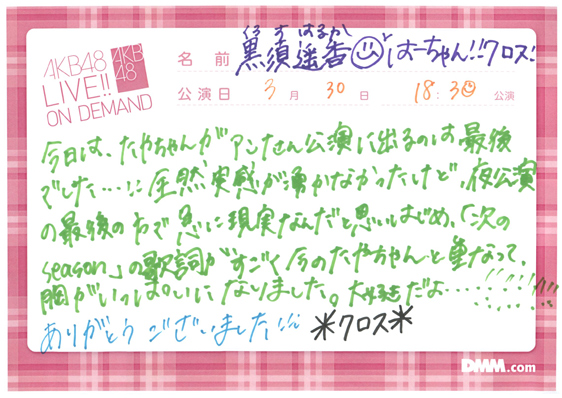 くろ す はるか
AKB48
LIVE!!
ON DEMAND
AKB
48
名 前 黒須遥香 はーちゃん!!クロス!
公演日 3 月 30 日 18:30 公演
今日は、たやちゃんがアンナさん公演に出るのは最後
でした…!! 全然実感が湧かなかったけど、夜公演
の最後の方で急に現実なんだと思いはじめ、「次の
season」の歌詞がすごく今のたやちゃんと重なって、
胸がいっぱいになりました。大好きだよ……!!!!!!!
ありがとうございました!! *クロス*
DMM.com